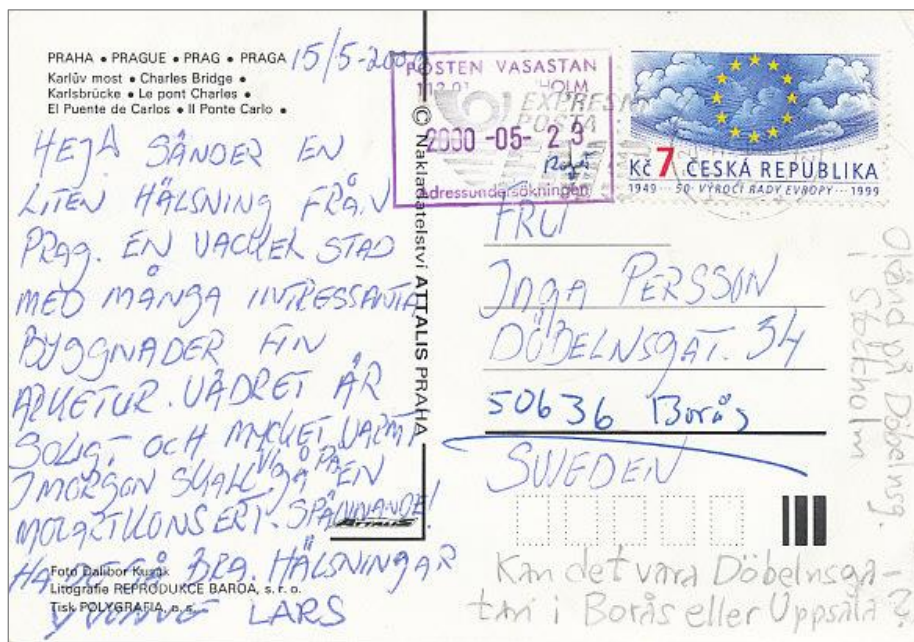 PRAHA • PRAGUE • PRAG • PRAGA
Karlův most • Charles Bridge •
Karlsbrücke • Le pont Charles •
El Puente de Carlos • Il Ponte Carlo •
15/5-2000
HEJÅ SÄNDER EN
LITEN HÄLSNING FRÅN
PRAG. EN VACKER STAD
MED MÅNGA INTRESSANTA
BYGGNADER FIN
ARKETUR. VÄDRET ÄR
SOLIGT OCH MYCKET VARMT
IMORGON SKALL VI GÅ PÅ EN
MOZARTKONSERT. SPÄNNANDE!
HA DET SÅ BRA. HÄLSNINGAR
LARS
Foto Dalibor Kusák
Litografie REPRODUKCE BAROA, s. r. o.
Tisk POLYGRAFIA, a. s.
© Nakladatelství ATTALIS PRAHA
ATTALIS
POSTEN VASASTAN
HOLM
2000 -05- 23
Adressundersökningen
EXPRESNÍ
POSTA
Kč 7 ČESKÁ REPUBLIKA
1949 ··· 50. VÝROČÍ RADY EVROPY ··· 1999
FRU
INGA PERSSON
DÖBELNSGAT. 34
50636 Borås
SWEDEN
Okänd på Döbelnsg.
i Stckholm
Kan det vara Döbelnsga-
tan i Borås eller Uppsala?